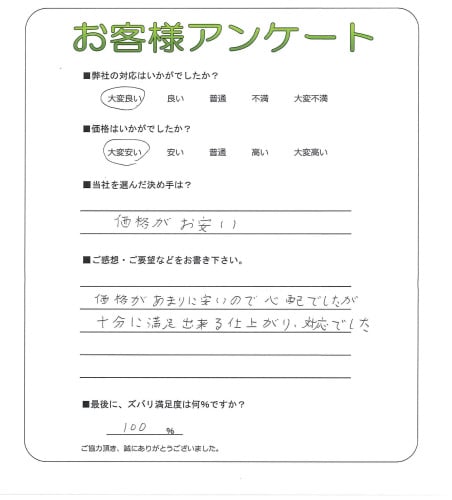 お客様アンケート
■弊社の対応はいかがでしたか？
大変良い 良い 普通 不満 大変不満
■価格はいかがでしたか？
大変安い 安い 普通 高い 大変高い
■当社を選んだ決め手は？
価格がお安い
■ご感想・ご要望などをお書き下さい。
価格があまりに安いので心配でしたが
十分に満足出来る仕上がり、対応でした
■最後に、ズバリ満足度は何%ですか？
100 %
ご協力頂き、誠にありがとうございました。